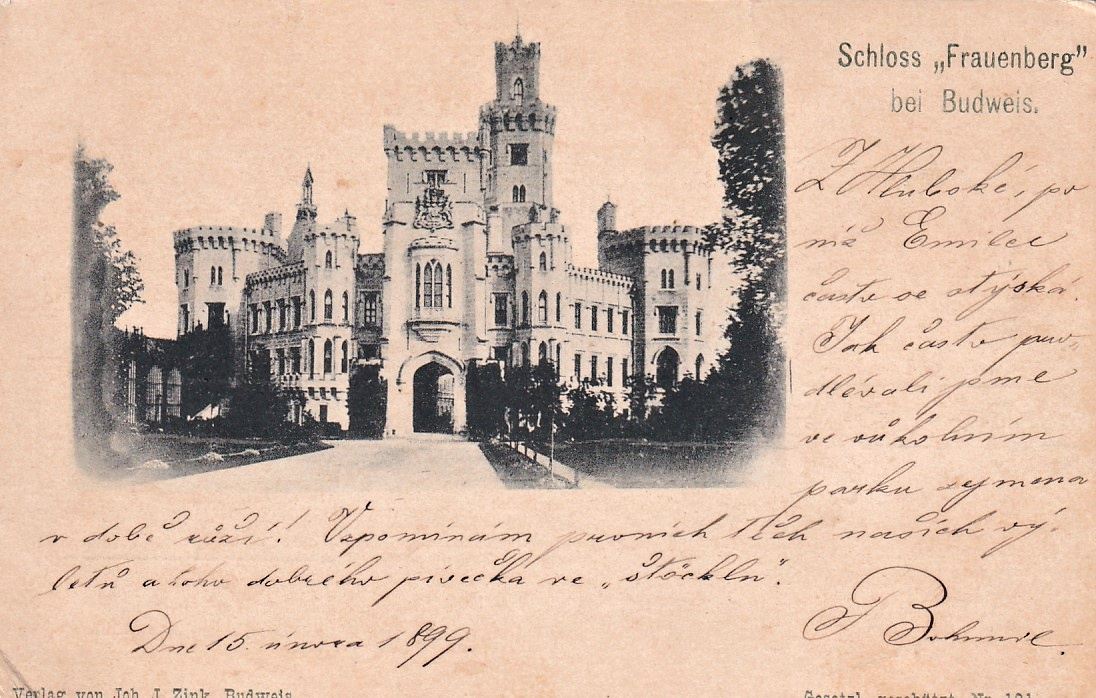 Schloss „Frauenberg"
bei Budweis.
Z Hluboké, po
níž Emilce
často se stýská.
Jak často pro-
dlévali jsme
ve vůkolním
parku zejmena
v době růží! Vzpomínám prvních těch našich vý-
letů a toho dobrého pivečka ve „štöcklu".
Dne 15. února 1899.
Bohumil.
Verlag von Joh. J. Zink, Budweis
Gesetzl. geschützt Nr. 121